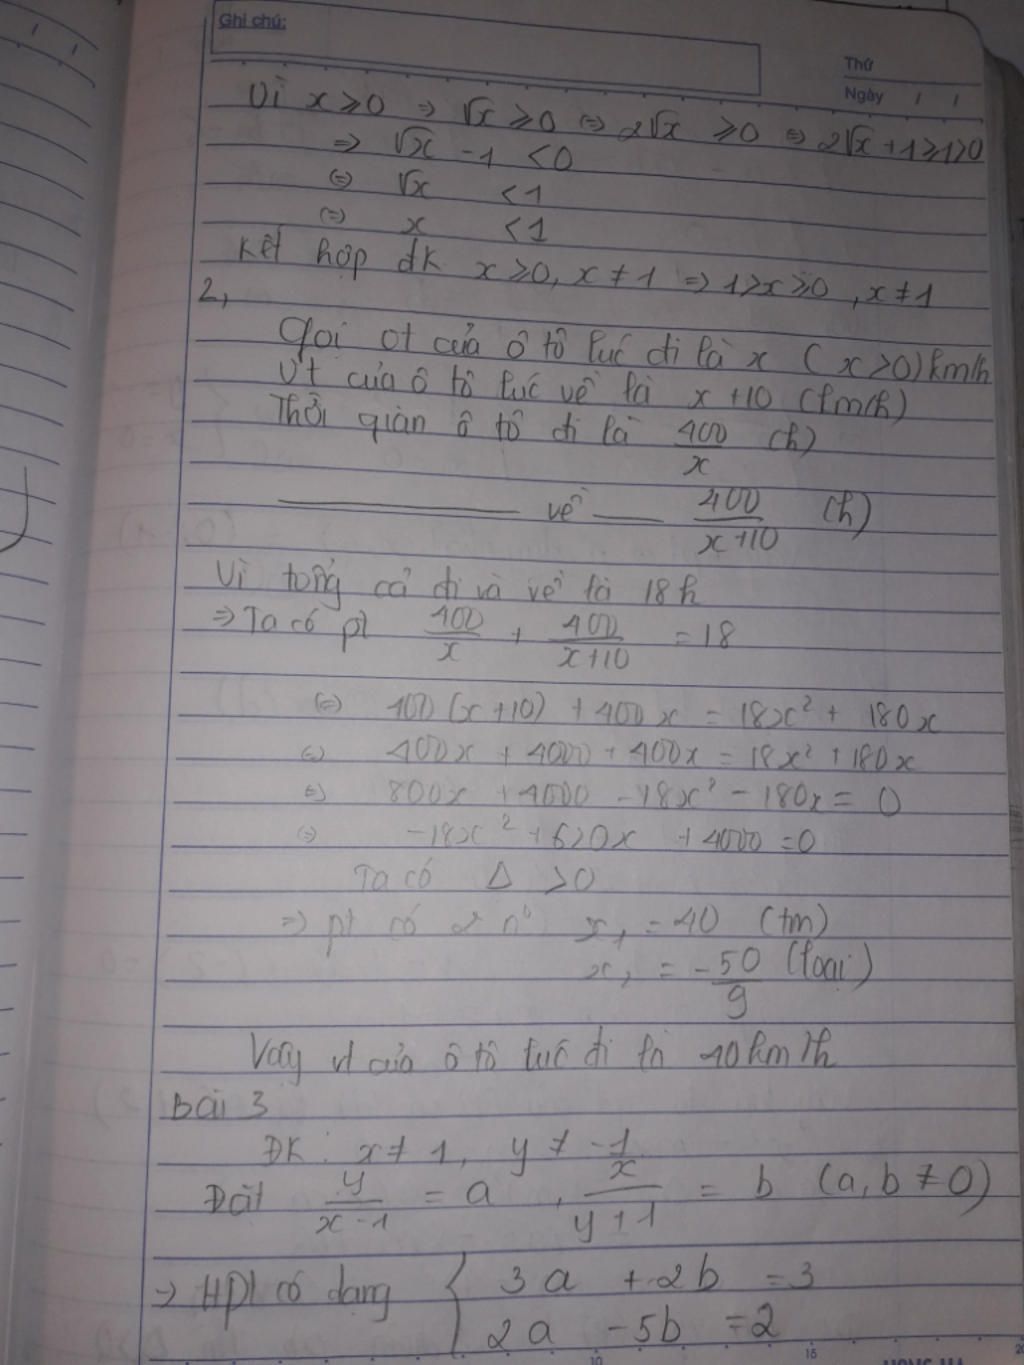 Ghi chú:
Thứ
Ngày / /
Vì x ≥ 0 ⇒ √x ≥ 0 ⇔ 2√x ≥ 0 ⇔ 2√x + 1 ≥ 1 > 0
⇒ √x - 1 < 0
⇔ √x < 1
⇔ x < 1
Kết hợp đk x ≥ 0, x ≠ 1 ⇒ 1 > x ≥ 0, x ≠ 1
2,
Gọi vt của ô tô lúc đi là x (x > 0) km/h
Vt của ô tô lúc về là x + 10 (km/h)
Thời gian ô tô đi là 400/x (h)
——— về —— 400/(x+10) (h)
Vì tổng cả đi và về là 18h
⇒ Ta có pt 400/x + 400/(x+10) = 18
⇔ 400(x+10) + 400x = 18x² + 180x
⇔ 400x + 4000 + 400x = 18x² + 180x
⇔ 800x + 4000 - 18x² - 180x = 0
⇔ -18x² + 620x + 4000 = 0
Ta có Δ > 0
⇒ pt có 2 n° x₁ = 40 (tm)
x₂ = -50/9 (loại)
Vậy vt của ô tô lúc đi là 40 km/h
Bài 3
ĐK: x ≠ 1, y ≠ -1
Đặt y/(x-1) = a, x/(y+1) = b (a, b ≠ 0)
⇒ Hpt có dạng { 3a + 2b = 3
2a - 5b = 2
10 15